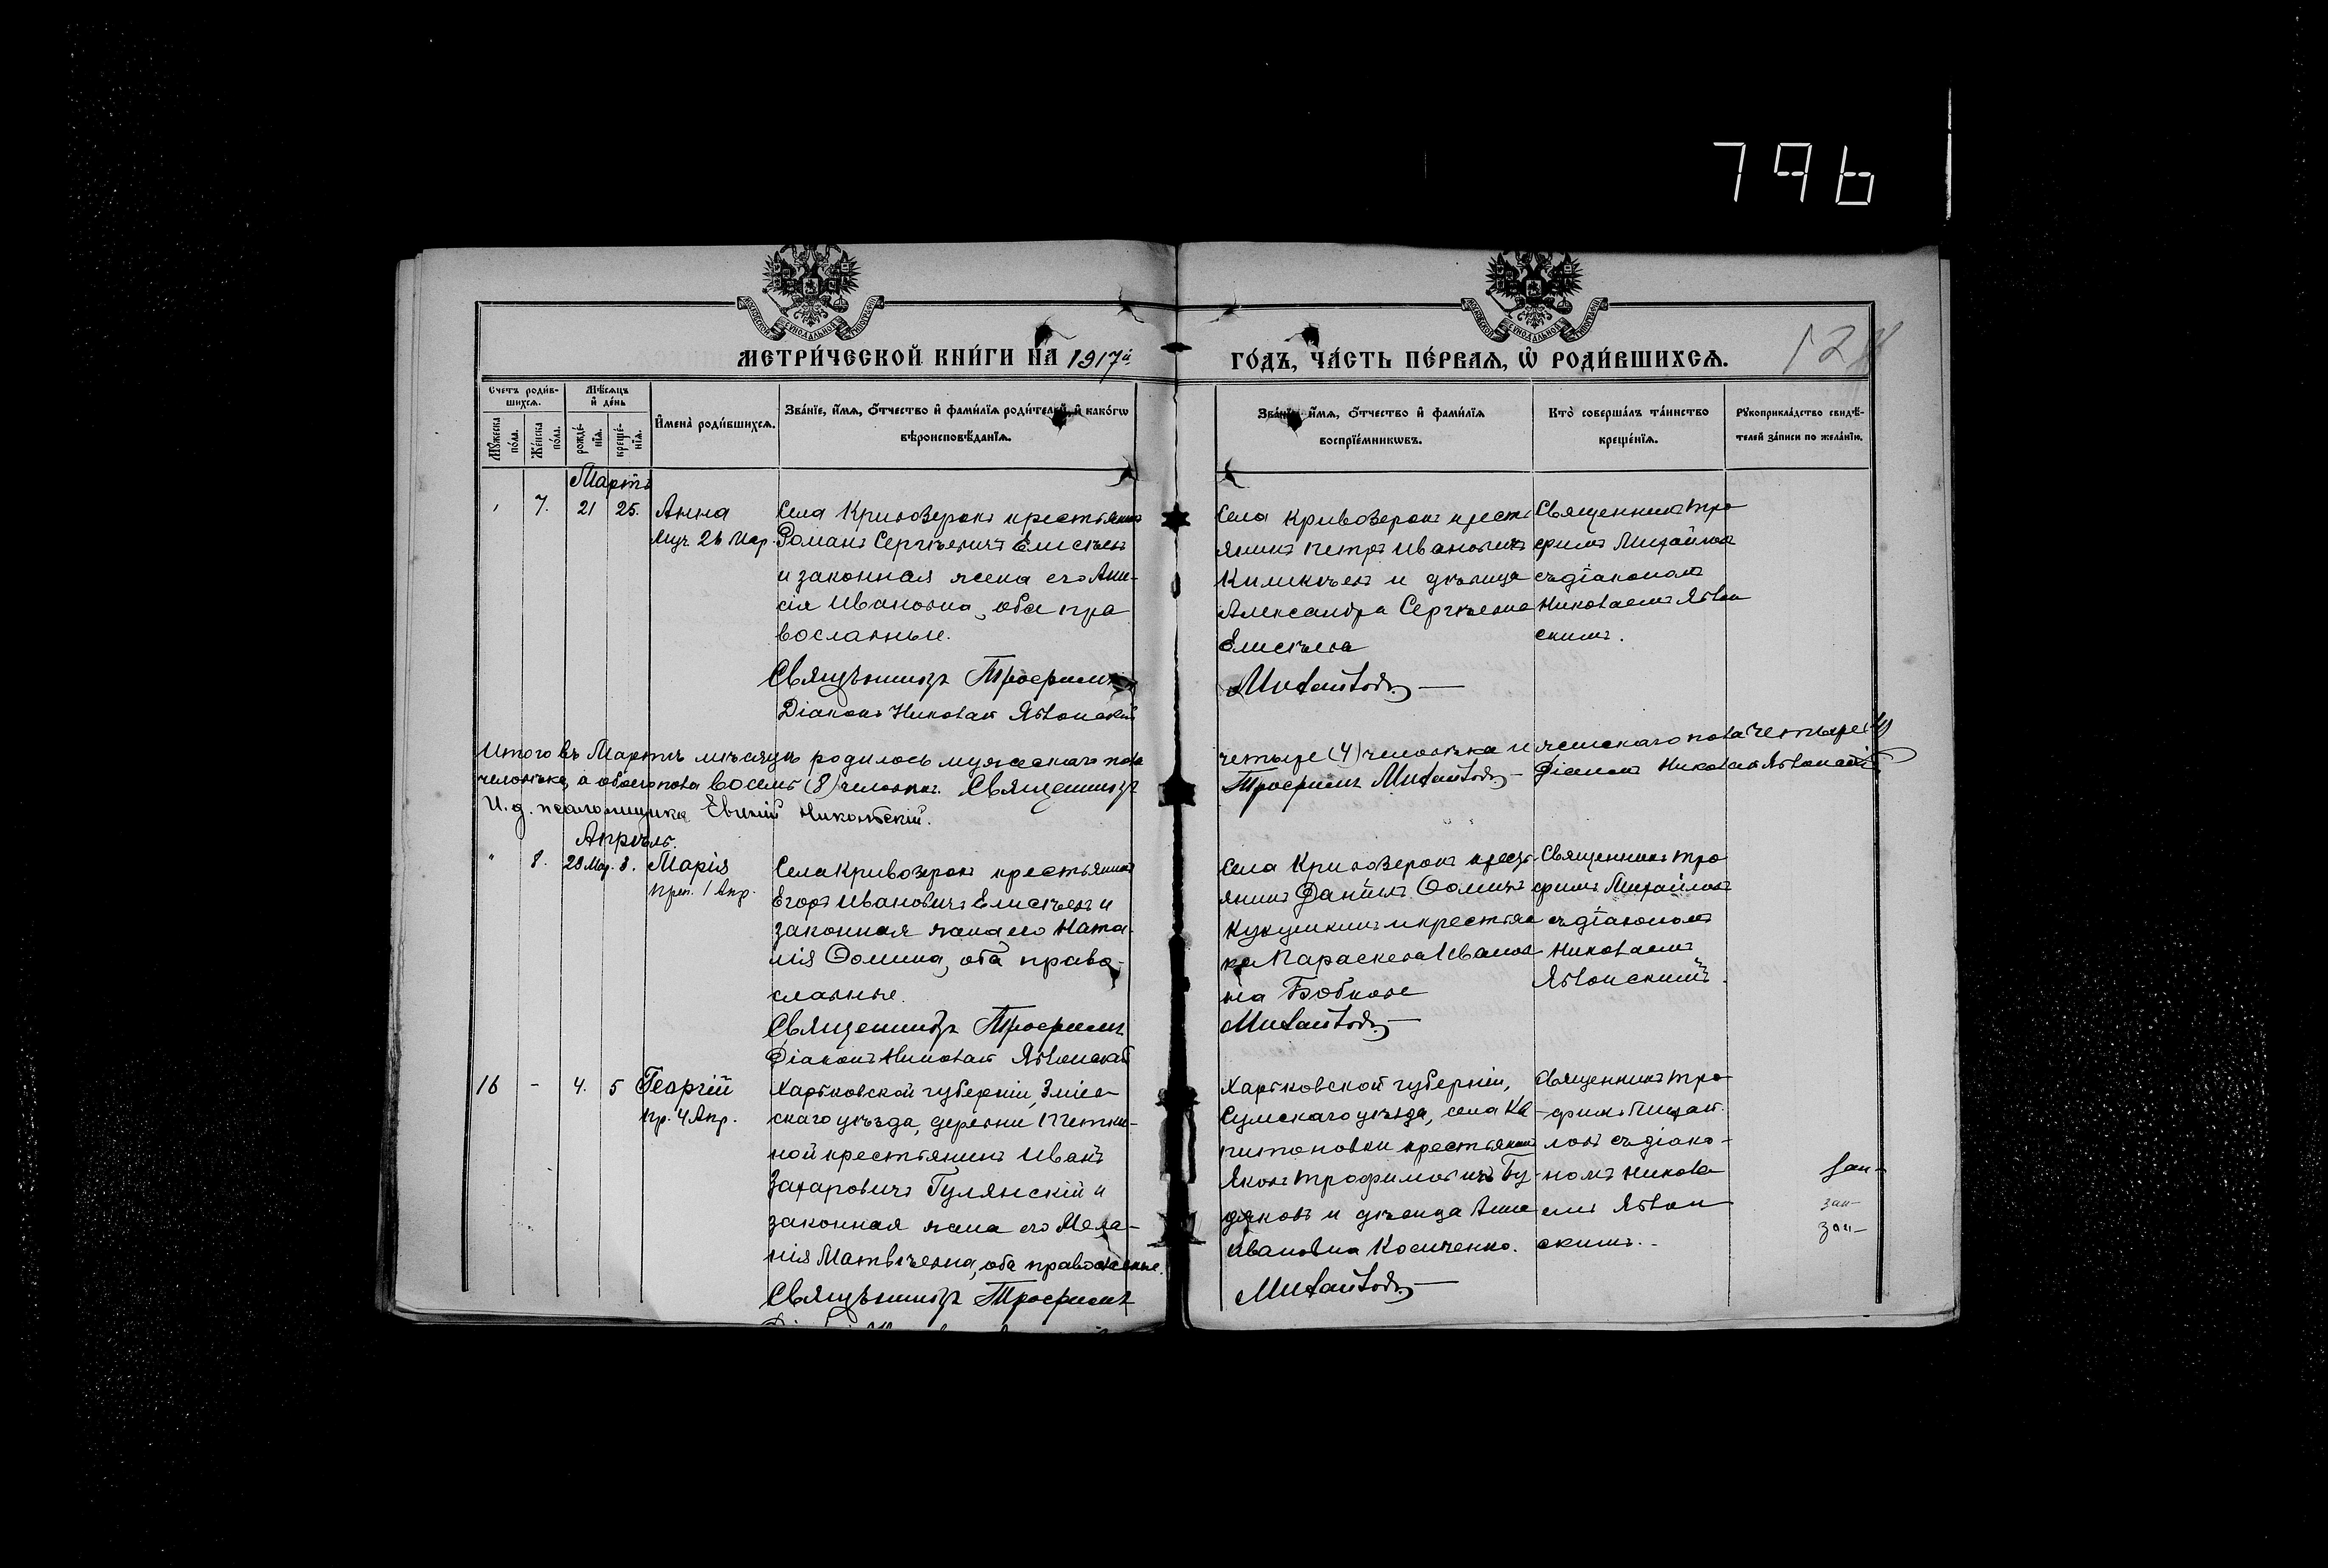 796
МЕТРИ́ЧЕСКОЙ КНИ́ГИ НА 1917й
ГО́ДЪ, ЧА́СТЬ ПЕ́РВАЯ, Ѡ҆ РОДИ́ВШИХСЯ.
Счетъ роди́вшихся.
Мꙋжеска по́ла.
Же́нска по́ла.
Мѣ́сяцъ и҆ де́нь
рожде́нїя.
креще́нїя.
И҆мена̀ роди́вшихся.
Зва́нїе, и҆́мя, ѻ҆́тчество и҆ фами́лїя роди́телей, и҆ како́гѡ
вѣроисповѣ́данїя.
Зва́нїе, и҆́мя, ѻ҆́тчество и҆ фами́лїя
воспрїе́мникѡвъ.
Кто̀ соверша́лъ та́инство
креще́нїя.
Рꙋкоприкла́дство свидѣ́-
телей за́писи по жела́нїю.
Мартъ
7. 21 25. Анна
Муч. 26 Мар.
Села Кривозерокъ крестьянинъ
Романъ Сергѣевичъ Елисѣевъ
и законная жена его Ани-
сія Ивановна, оба пра
вославные.
Священникъ Трофимъ
Діаконъ Николай Яблонскій
Села Кривозерокъ крест
янинъ Петръ Ивановичъ
и дѣвица
Александра Сергѣевна
Елисѣева
Михайловъ
Священникъ Тро
фимъ Михайловъ
съ діакономъ
Николаемъ Яблон
скимъ.
Итого въ Мартѣ мѣсяцѣ родилось мужескаго пола
четыре (4) человѣка и женскаго пола четыре (4)
человѣка, а обоего пола восемь (8) человѣкъ. Священникъ
Трофимъ Михайловъ Діаконъ Николай Яблонскій
И. д. псаломщика Евгеній Никольскій.
Апрѣль.
" 8. 28 Мар. 3. Марія
Преп. 1 Апр.
Села Кривозерокъ крестьянинъ
Егоръ Ивановичъ Елисѣевъ и
законная жена его Ната-
лія Ѳомина, оба право-
славные.
Священникъ Трофимъ
Діаконъ Николай Яблонскій
Села Кривозерокъ крест-
янинъ Даніилъ Ѳоминъ
Кукушкинъ и крестьян
ка Параскева Иванов
на Бобкова
Михайловъ
Священникъ Тро
фимъ Михайловъ
съ діакономъ
Николаемъ
Яблонскимъ.
16 - 4. 5 Георгій
Пр. 4 Апр.
Харьковской губерніи, Зміев-
скаго уѣзда, деревни
ной крестьянинъ Иванъ
Захаровичъ Гулянскій и
законная жена его Мела-
нія Матвѣевна, оба православные.
Священникъ Трофимъ
Харьковской губерніи,
Сумскаго уѣзда, села Ка
питоновки крестьянинъ
Яковъ Трофимовичъ Бу
дяковъ и дѣвица Анна
Ивановна Косиченко.
Михайловъ
Священникъ Тро
фимъ Михай
ловъ съ діако-
номъ Никола
емъ Яблон
скимъ.